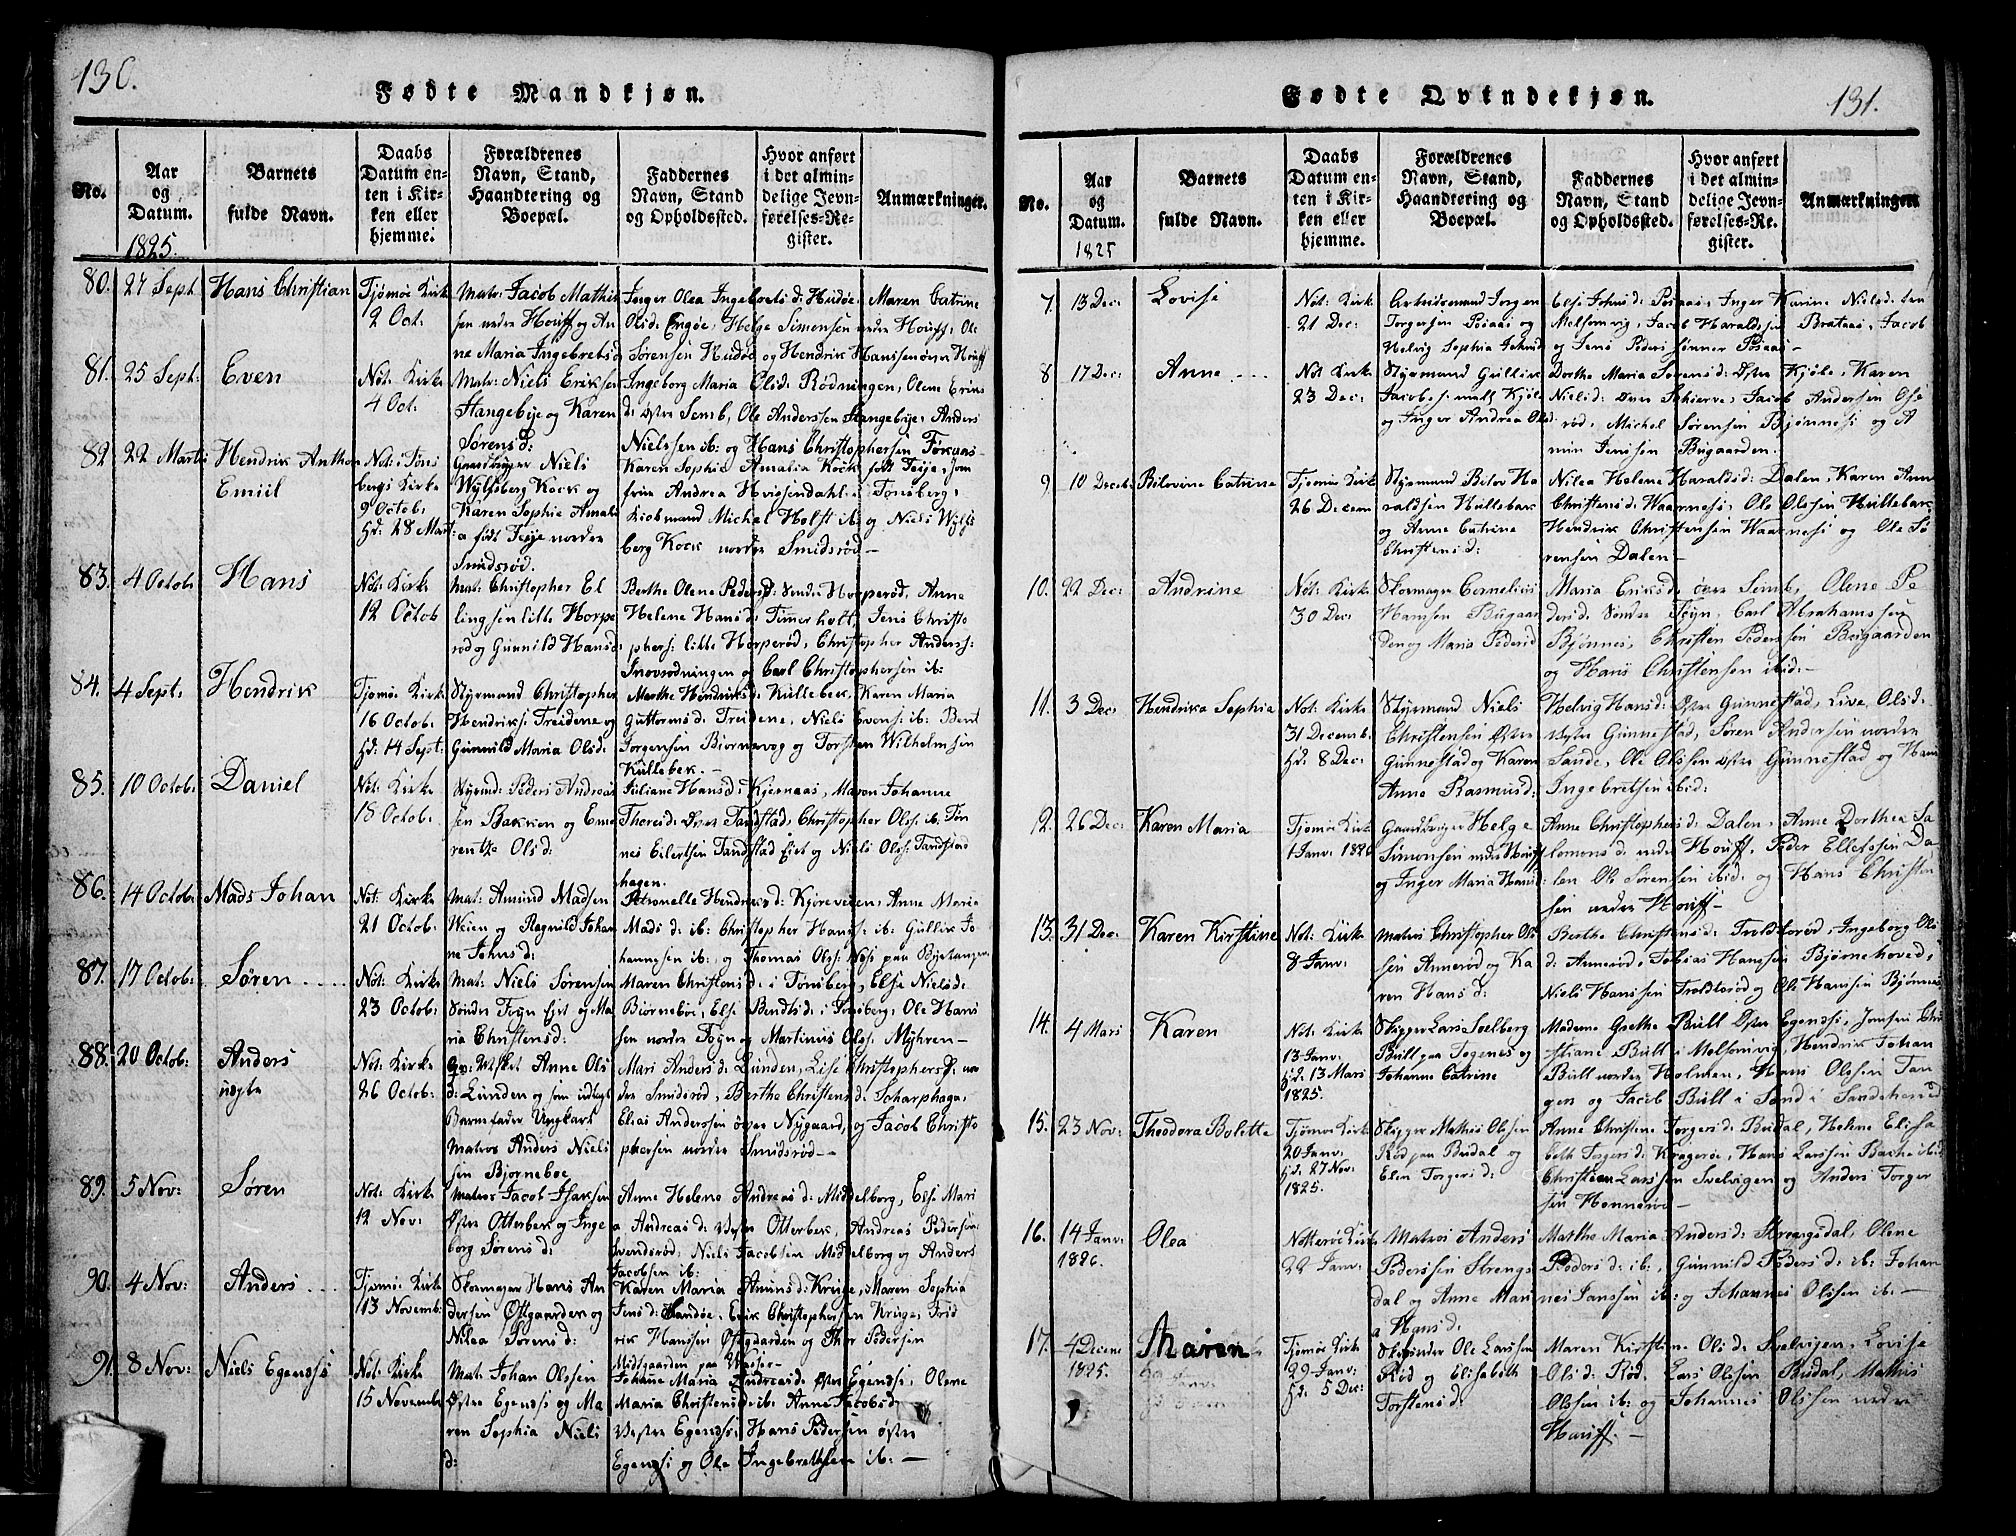 130.
Fødte Mandkjøn.
No.
Aar og Datum.
1825.
Barnets fulde Navn.
Daabs Datum enten i Kirken eller hjemme.
Forældrenes Navn, Stand, Haandtering og Boepæl.
Faddernes Navn, Stand og Opholdssted.
Hvor anført i det almindelige Jevnførelses-Register.
Anmærkninger.
80. 27 Sept. Hans Christian
Tjømøe Kirk
2 Oct.
Matr: Jacob Mathi
sen nedre Houff og An
ne Maria Ingebretsd
Inger Olea Ingebretsd: Hudøe, Maren Catrine
Olsd: Engøe, Helge Simonsen nedre Houff, Ole
Sørensen Hudøe og Hendrik Hanssen øvre Houff
81. 25 Sept: Even
Nøt: Kirk
4 Oct.
Matr: Niels Eriksen
Hangebye og Karen
Sørensd:
Ingeborg Maria Olsd: Rødningen, Olene Erik
d: østre Semb, Ole Andersen Hangebye, Anders
Nielssen ib: og Hans Christophersen
82. 22 Marts Hendrik Anthon
Emiil
Nøt: i Tøns
bergs Kirke
9 Octob:
hd: 28 Mart:
Gaardbruger Niels
Wylfsberg Kock og
Karen Sophie Amali
a født Feije nordre
Smidsrød.
Karen Sophie Amalia Kock født Feije, Jom
frue Andrea Hvissendahl i Tønsberg,
Kiobmand Michel Holst ib: og Niels Wylfs
berg Kock nordre Smidsrød —
83. 4 Octob: Hans
Nøt: Kirk
12 Octob
Mat: Christopher El
lingsen lille Horpe
rød og Gunnild Hansd:
Berthe Olene Pedersd: Søndre Horperød, Anne
Helene Hansd: Tømmerholt, Jens Christo
phers: lille Horperød, Christopher Anders:
og Carl Christophersen ib:
84. 4 Sept. Hendrik
Tjømøe Kirk
16 Octob:
hd: 14 Sept:
Styrmand Christopher
Hendriks: Treidene og
Gunnild Maria Olsd:
Marthe Hendriksd: Kullebek, Karen Maria
Guttormsd: Treidene, Niels Evens: ib: Bent
Jørgensen Biørnevog og Torsten Wilhelmsen
Kullebek. —
85. 10 Octob: Daniel
Nøt: Kirk
18 Octob:
Styrmd: Peder Andreas
sen Bakken og Eme
rentze Olsd:
Juliane Hansd: Kjernaas, Maren Johanne
Thoresd: Øvre Tandstad, Christopher Ols: ib: Tøn
nes Eilertsen Tandstad Eiet og Niels Ols: Tandstad
hagen.
86. 14 Octob: Mads Johan
Nøt: Kirk
21 Octob:
Mat: Amund Madsen
Weien og Ragnild Johan
ne Johnsd:
Petronelle Hendriksd: Kjøreveien, Anne Maria
Mads d: ib: Christopher Hans: ib: Gullik Jo
hannesen ib: og Thomas Ols: Næs paa
87. 17 Octob: Søren
Nøt: Kirk
23 Octob:
Mat: Niels Sørensen
Søndre Føyn Eiet og Ma
ria Christensd:
Maren Christensd: i Tønsberg, Else Nielsd:
Biørneboe, Else Bendtsd: i Tønsberg, Ole Hans
sen nordre Føyn og Martinus Ols: Myhren —
88. 20 Octob: Anders
uægte
Nøt: Kirk
26 Octob:
Gv: Pesket Anne Ols
d: Lunden og som udlagt
Barnefader Ungkarl
Matros Anders Niels
sen Bjørneboe
Mari Anders d: Lunden, Lise Christophers d: nor
dre Smidsrød, Berthe Christens d: Scharphaga,
Elias Anderssen øvre Nygaard, og Jacob Christo
phersen nordre Smidsrød —
89. 5 Nov: Søren
Nøt: Kirk
12 Nov:
Matros Jacob Isaksen
Østre Otterbek og Inge
borg Sørens d:
Anne Helene Andreas d: Middelborg, Else Mari
a Andreas d: Vestre Otterbek, Andreas Pedersen
Svendsrød, Niels Jacobsen Middelborg og Anders
Jacobsen ib:
90. 4 Nov: Anders
Tjømøe Kirk
13 Novemb:
Skomager Hans An
dersen Østgaarden og
Nilea Sørens d:
Karen Maria Amunds d: Kruge, Maren Sophia
Jens d: Sandøe, Erik Christophersen Kruge, Frid
rik Hanssen Østgaarden og Thor Pedersen
Midtgaarden paa
91. 8 Nov: Niels Egenæs
Nøt: Kirk
15 Novemb
Mat: Johan Olssen
Østre Egenæs og Ma
ren Sophia Niels
d:
Johanne Maria Andreasd: Østre Egenæs, Olene
Maria Christensd: ib: Anne Jacobsd:
Vestre Egenæs, Hans Pedersen østre
Egenæs og Ole Ingebrethsen ib: —
131.
Fødte Qvindekjøn.
No.
Aar og Datum.
1825
Barnets fulde Navn.
Daabs Datum enten i Kirken eller hjemme.
Forældrenes Navn, Stand, Haandtering og Boepæl.
Faddernes Navn, Stand og Opholdssted.
Hvor anført i det almindelige Jevnførelses-Register.
Anmærkninger
7. 13 Dec: Lovise
Nøt: Kirk
21 Dec:
Arbeidsmand Jørgen
Torgersen Røsaas og
Helvig Sophia
Else Johns d: Røsaas, Inger Karine Niels d:
Melsomvig, Jacob Haralds: Brataas, Jacob
og Jens Peders: Sønner Røsaas —
8 17 Dec: Anne
Nøt Kirk
23 Dec:
Styrmand Gullik
Jacobs: mell Kjøl
og Inger Andrea Ols
Dorthe Maria Sørens d: Østre Kjøle, Karen
Niels d: Øvre Schierve, Jacob Andersen Ose
rød, Michel Sørensen Bjønnes og A
mun Jenssen Bugaarden.
9. 10 Decemb: Bilovine Catrine
Tjømøe Kirk
26 Decem
Styrmand Bilov Ha
raldsen Hullebak
og Anne Catrine
Christens d:
Nilea Helene Haralds d: Dalen, Karen Ann
Christens d: Waarnes, Ole Olssen Hullebak
Hendrik Christensen Waarnes og Ole Sø
rensen Dalen —
10. 22 Dec: Andrine
Nøt: Kirk
30 Dec:
Skomager Cornelius
Hansen Bugaar
den og Maria Peders d
Maria Eriks d: øvre Semb, Olene Pe
ders d: Søndre Føyn, Carl Abrahamssen
Bjønnes, Christen Pederssen Bugaarden
og Hans Christensen ibid: —
11. 3 Dec: Hendrika Sophia
Nøt: Kirk
31 Decemb:
hd: 8 Dec:
Styrmand Niels
Christensen Østre
Gunnestad og Karen
Anne Rasmusd:
Helvig Hansd: Østre Gunnestad, Live Olsd:
Vestre Gunnestad, Søren Andersen nordre
Sande, Ole Olssen østre Gunnestad og Hans
Ingebretsen ibid:
12. 26 Dec: Karen Maria
Tjømøe Kirk
1 Janv: 1826
Gaardbruger Helge
Simonsen nedre Houff
og Inger Maria Hansd:
Anne Christophers d: Dalen, Anne Dorthea Sa
lomons d: nedre Houff, Peder Ellefssen Da
len Ole Sørensen ibid: og Hans Christen
sen nedre Houff —
13. 31 Dec: Karen Kirstine
Nøt: Kirk
8 Janv:
Matros Christopher Ols
sen Annerød og Ka
ren Hans d:
Berthe Christens d: Troldterød, Ingeborg Ols
d: Annerød, Tobias Hanssen Bjørnehoved,
Niels Hanssen Troldterød og Ole Hanssen Bjønnes
14. 4 Mars Karen
Nøt: Kirk
13 Janv:
hd. 13 Mars
1825.
Skipper Lars Soelberg
Bull paa Togenes og
Johanne Catrine
Madame Goethe Bull Østre Egenæs, Jomfru Chri
stiane Bull i Melsomvig, Hendrik Johan
Bull nordre Holmen, Hans Olssen Tan
gen og Jacob Bull i Sand i Sandeherred
15. 23 Nov: Theodora Bolette
Tjømøe Kirk
20 Janv:
hd. 27 Nov:
1825.
Skipper Mathis Olssen
Rød paa Budal og
Elen Torgers d:
Anne Christine Torgers d: Budal, Helene Elisa
beth Torgers d: Kragerøe, Hans Larssen Bakke ibid
Christen Larssen Svelvigen og Anders Torger
sen Hønnerøe —
16. 14 Janv: Olea
1826.
Nøtterøe Kirk
22 Janv:
Matros Anders
Pederssen Strengs
dal og Anne Mari
a Hans d:
Marthe Maria Anders d: Strengsdal, Olene
Peders d: ib:, Gunnild Peders d: ib: Johan
nes Janssen ib: og Johannes Olssen ib: —
17. 4 Decem Maren
1825.
Tjømøe Kirk
29 Janv:
hd. 5 Dec:
Skibtmder Ole Larssen
Rød og Elisabeth
Torstens d:
Maren Kirstine Ols d: Svelvigen, Lovise
Ols d: Rød, Lars Olssen Budal, Mathis
Olssen ib: og Johannes Olssen nedre
Houff. —